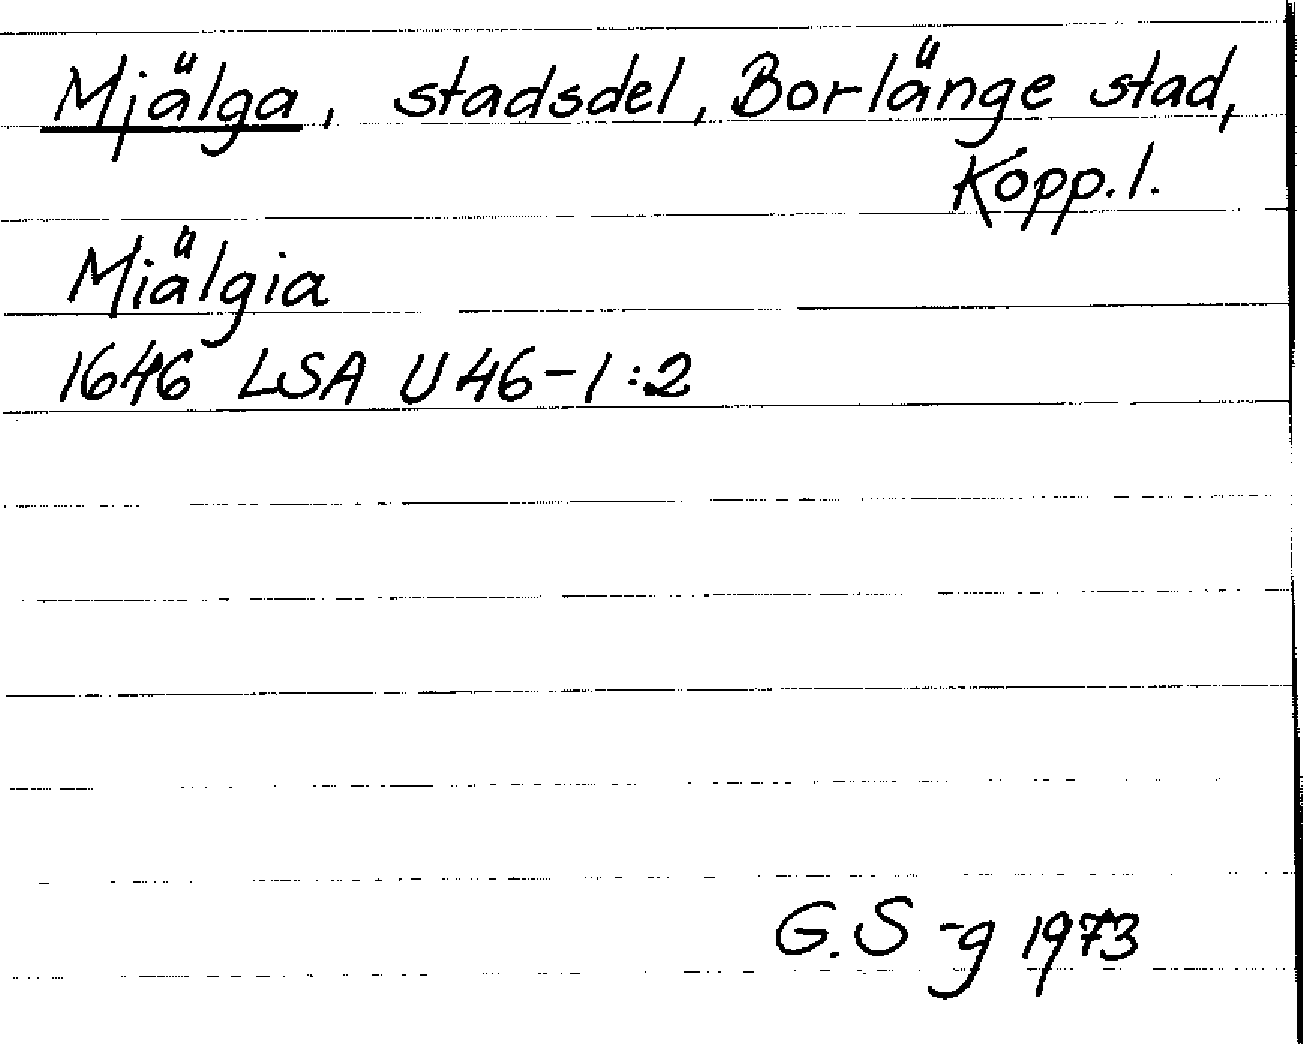 Mjälga, stadsdel, Borlänge stad,
Kopp. l.
Miälgia
1646 LSA U 46-1:2
G. S-g 1973